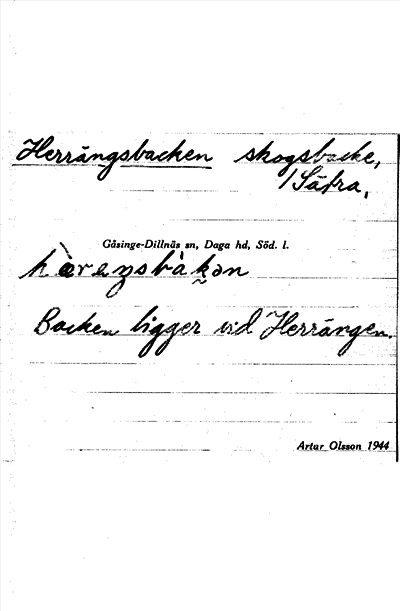 Herrängsbacken skogsbacke,
/Sätra,
Gåsinge-Dillnäs sn, Daga hd, Söd. l.
Backen ligger vid Herrängen.
Artur Olsson 1944